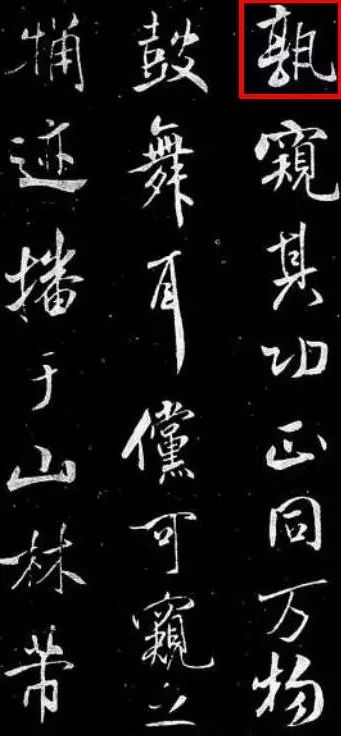 孰窺其功正同万物
鼓舞耳儻可窺之
迹播于山林